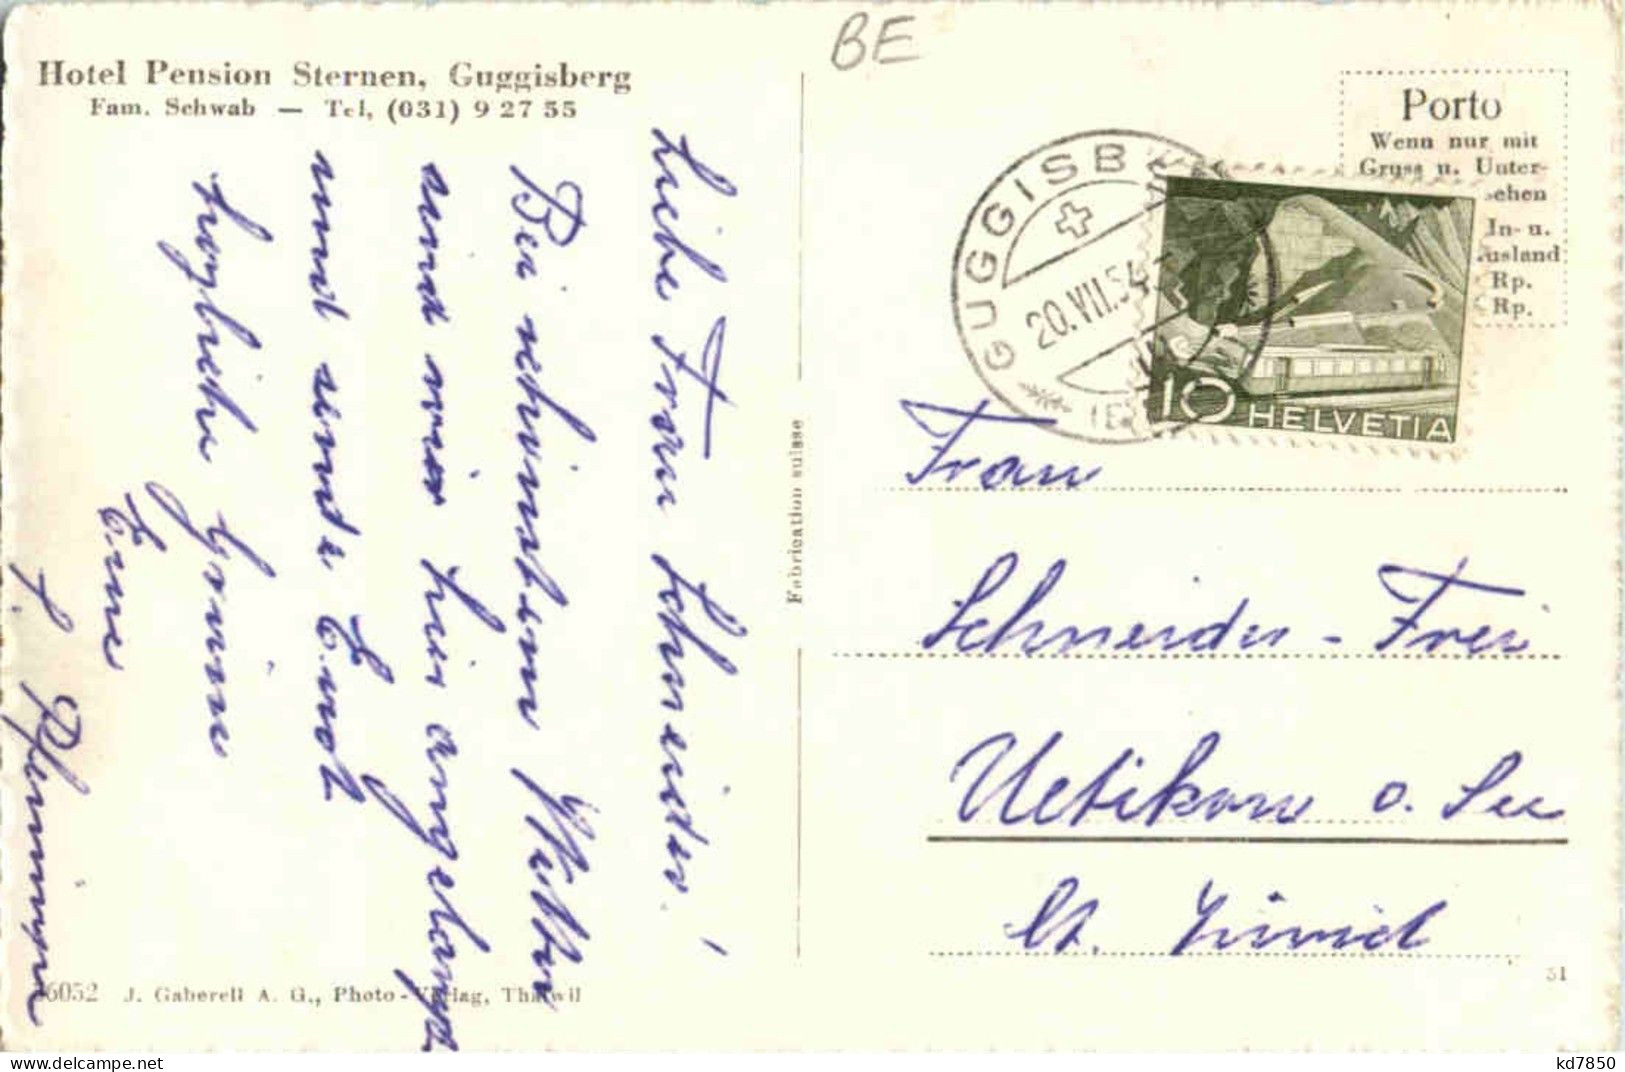 BE
Hotel Pension Sternen, Guggisberg
Fam. Schwab — Tel, (031) 9 27 55
Liebe Frau Schneider!
Bei schönstem Wetter
sind wir hier angelangt
und senden Euch
herzliche Grüsse
Eure
Fabrication suisse
6052 J. Gaberell A. G., Photo-Verlag, Thalwil
Porto
Wenn nur mit
Gruss u. Unter-
sehen
In- u.
usland
Rp.
Rp.
GUGGISB
20.VII.54
10 HELVETIA
Frau
Schneider-Frei
Uetikon a. See
Kt. Zürich
51
delcampe.net
kd7850